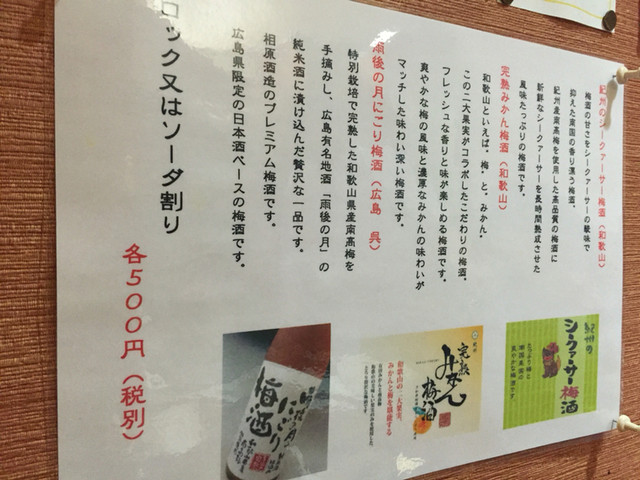 紀州のシークァーサー梅酒(和歌山)
梅酒の甘さをシークァーサーの酸味で
抑えた南国の香り漂う梅酒。
紀州産南高梅を使用した高品質の梅酒に
新鮮なシークァーサーを長時間熟成させた
風味たっぷりの梅酒です。
完熟みかん梅酒(和歌山)
和歌山といえば、梅・と、みかん。
この二大果実がコラボしたこだわりの梅酒。
フレッシュな香りと味が楽しめる梅酒です。
爽やかな梅の風味と濃厚なみかんの味わいが
マッチした味わい深い梅酒です。
雨後の月にごり梅酒(広島 呉)
特別栽培で完熟した和歌山県産南高梅を
手摘みし、広島有名地酒「雨後の月」の
純米酒に漬け込んだ贅沢な一品です。
相原酒造のプレミアム梅酒です。
広島県限定の日本酒ベースの梅酒です。
ロック又はソーダ割り
各500円(税別)
紀州の
シークァーサー梅酒
たっぷり梅と
南国果実の
爽やかな梅酒です。
完熟
みかん
梅酒
和歌山の二大果実、
みかんと梅を堪能する
雨後の月
にごり
梅酒